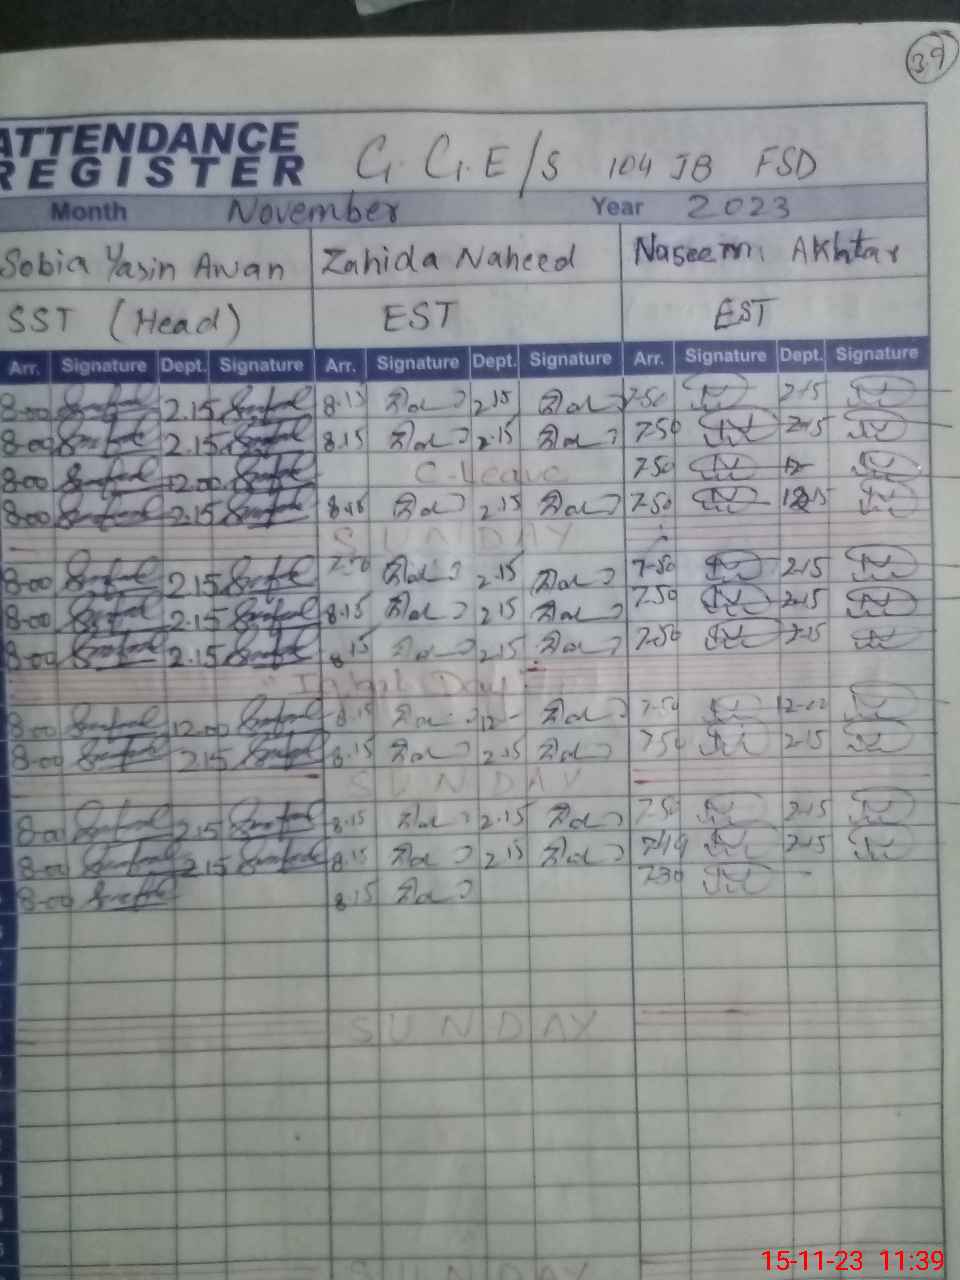 39
ATTENDANCE
REGISTER G.G.E/S 104 JB FSD
Month November Year 2023
Sobia Yasin Awan Zahida Naheed Naseem Akhtar
SST (Head) EST EST
Arr. Signature Dept. Signature Arr. Signature Dept. Signature Arr. Signature Dept. Signature
8-00 2.15 8.15 2.15 7-50 2-15
8-00 2.15 8.15 2.15 7.50 2-15
8-00 12.00 C-Leave 7.50 12
8-00 2.15 8.15 2.15 7.50
SUNDAY
8-00 2.15 7.50 2.15 7-50 2-15
8-00 2.15 8.15 2.15 7.50 2-15
8-00 2.15 8.15 2.15 7-50 2-15
"Iqbal Day"
8-00 12.00 8.15 12- 7-50 12-00
8-00 2.15 8.15 2.15 7.50 2-15
SUNDAY
8-00 2.15 8.15 2.15 7.50 2-15
8-00 2.15 8.15 2.15 2-15
8-00 8.15 7.30
SUNDAY
SUNDAY
15-11-23 11:39